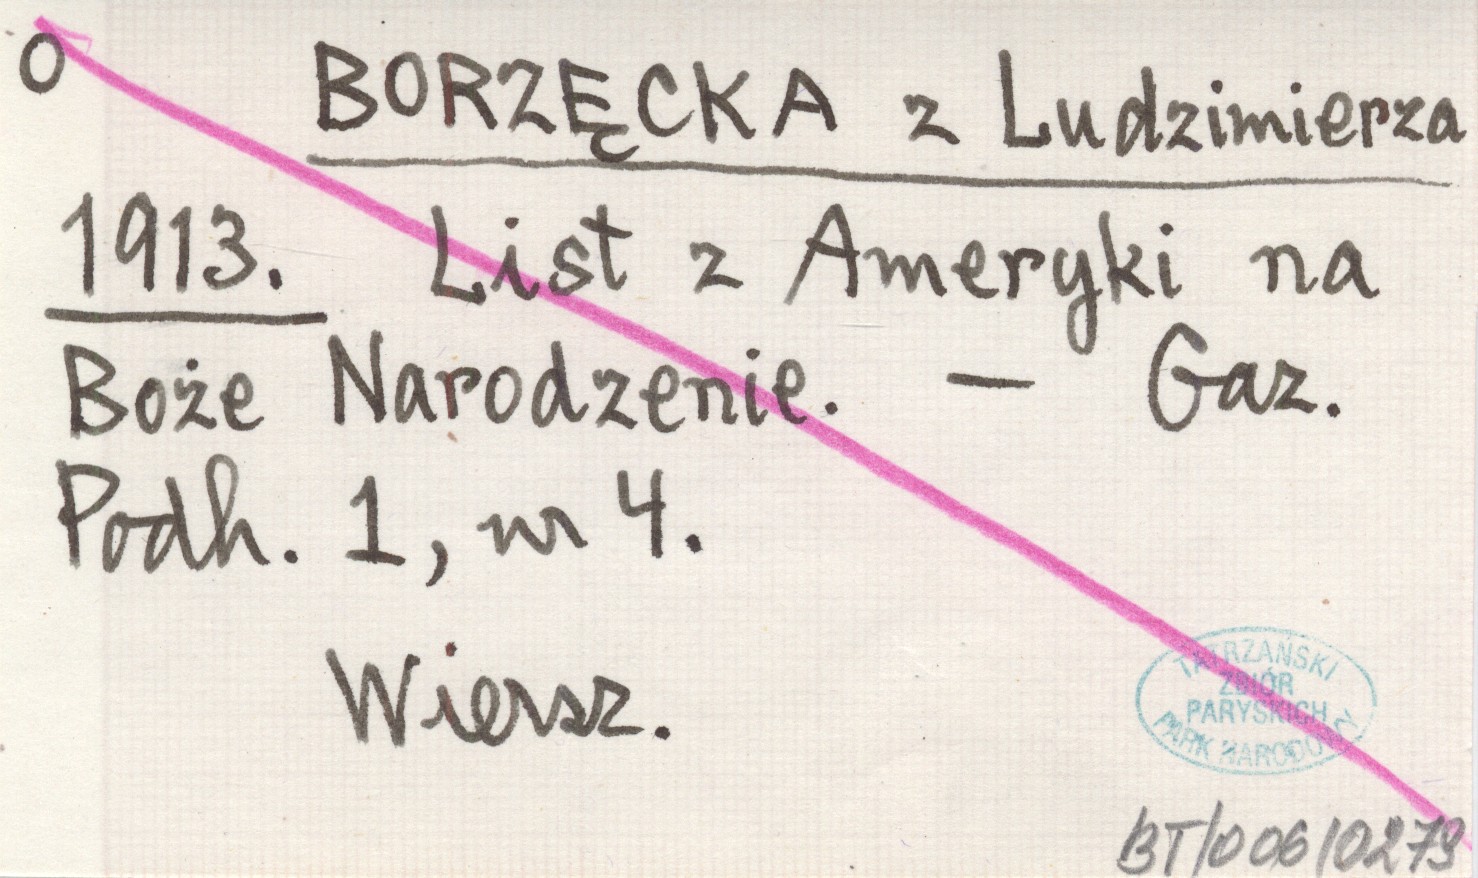 O BORZĘCKA z Ludzimierza
1913. List z Ameryki na
Boże Narodzenie. — Gaz.
Podh. 1, nr 4.
Wiersz.
TATRZAŃSKI
ZBIÓR
PARYSKICH
PARK NARODOWY
BT/006/0273